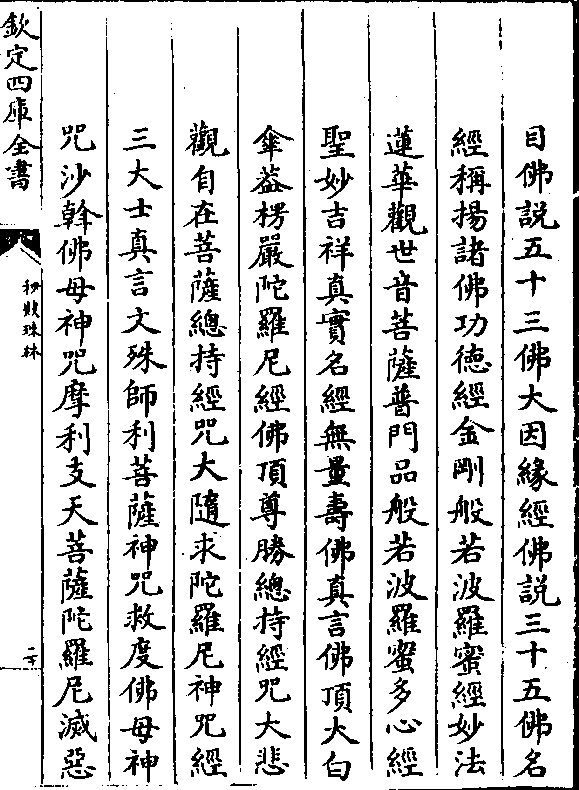 目佛說五十三佛大因緣經佛說三十五佛名
經稱揚諸佛功德經金剛般若波羅蜜經妙法
蓮華觀世音菩薩普門品般若波羅蜜多心經
聖妙吉祥真實名經無量壽佛真言佛頂大白
傘葢楞嚴陀羅尼經佛頂尊勝總持經咒大悲
觀自在菩薩總持經咒大隨求陀羅尼神咒經
三大士真言文殊師利菩薩神咒救度佛母神
咒沙斡佛母神咒摩利支天菩薩陀羅尼滅惡
欽定四庫全書
祕殿珠林
二十